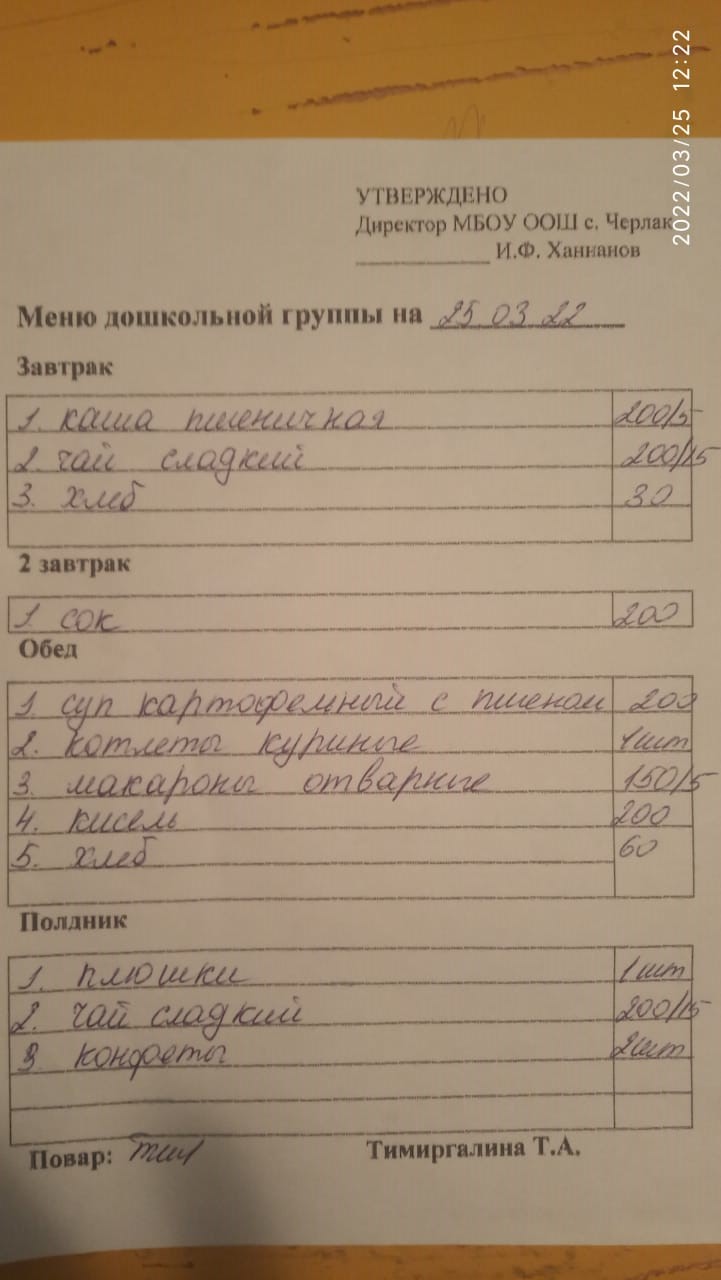 2022/03/25 12:22
УТВЕРЖДЕНО
Директор МБОУ ООШ с. Черлак
____________ И.Ф. Ханнанов
Меню дошкольной группы на 25 03 22
Завтрак
1. каша пшеничная 200/5
2. чай сладкий 200/15
3. хлеб 30
2 завтрак
1. сок 200
Обед
1. суп картофельный с пшеном 200
2. котлеты куриные 1шт
3. макароны отварные 150/5
4. кисель 200
5. хлеб 60
Полдник
1. плюшки 1шт
2. чай сладкий 200/15
3 конфеты 2шт
Повар: Тимиргалина Т.А.